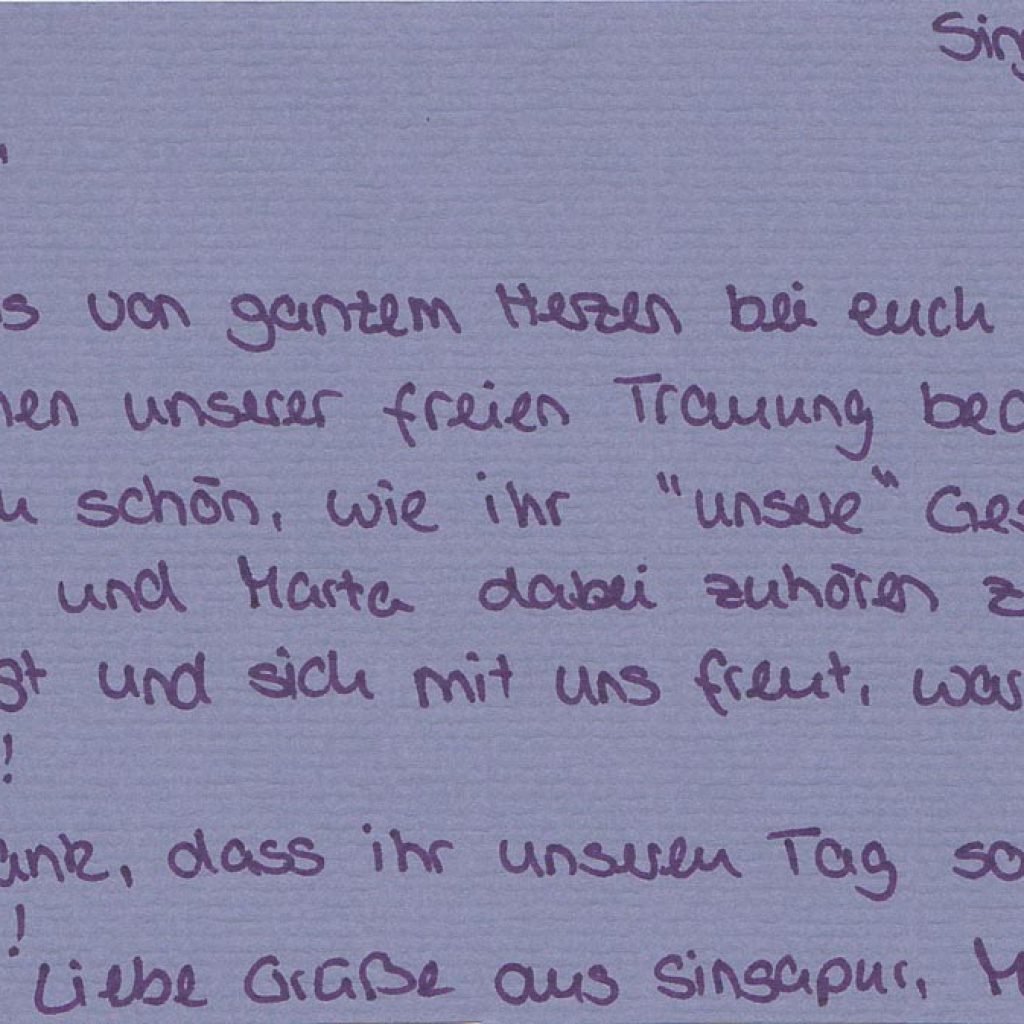 Sing
s von ganzem Herzen bei euch
nen unserer freien Trauung bed
schön, wie ihr "unsere" Ges
und Marta dabei zuhören z
gt und sich mit uns freut, war
!
ank, dass ihr unseren Tag so
!
Liebe Grüße aus Singapur, M